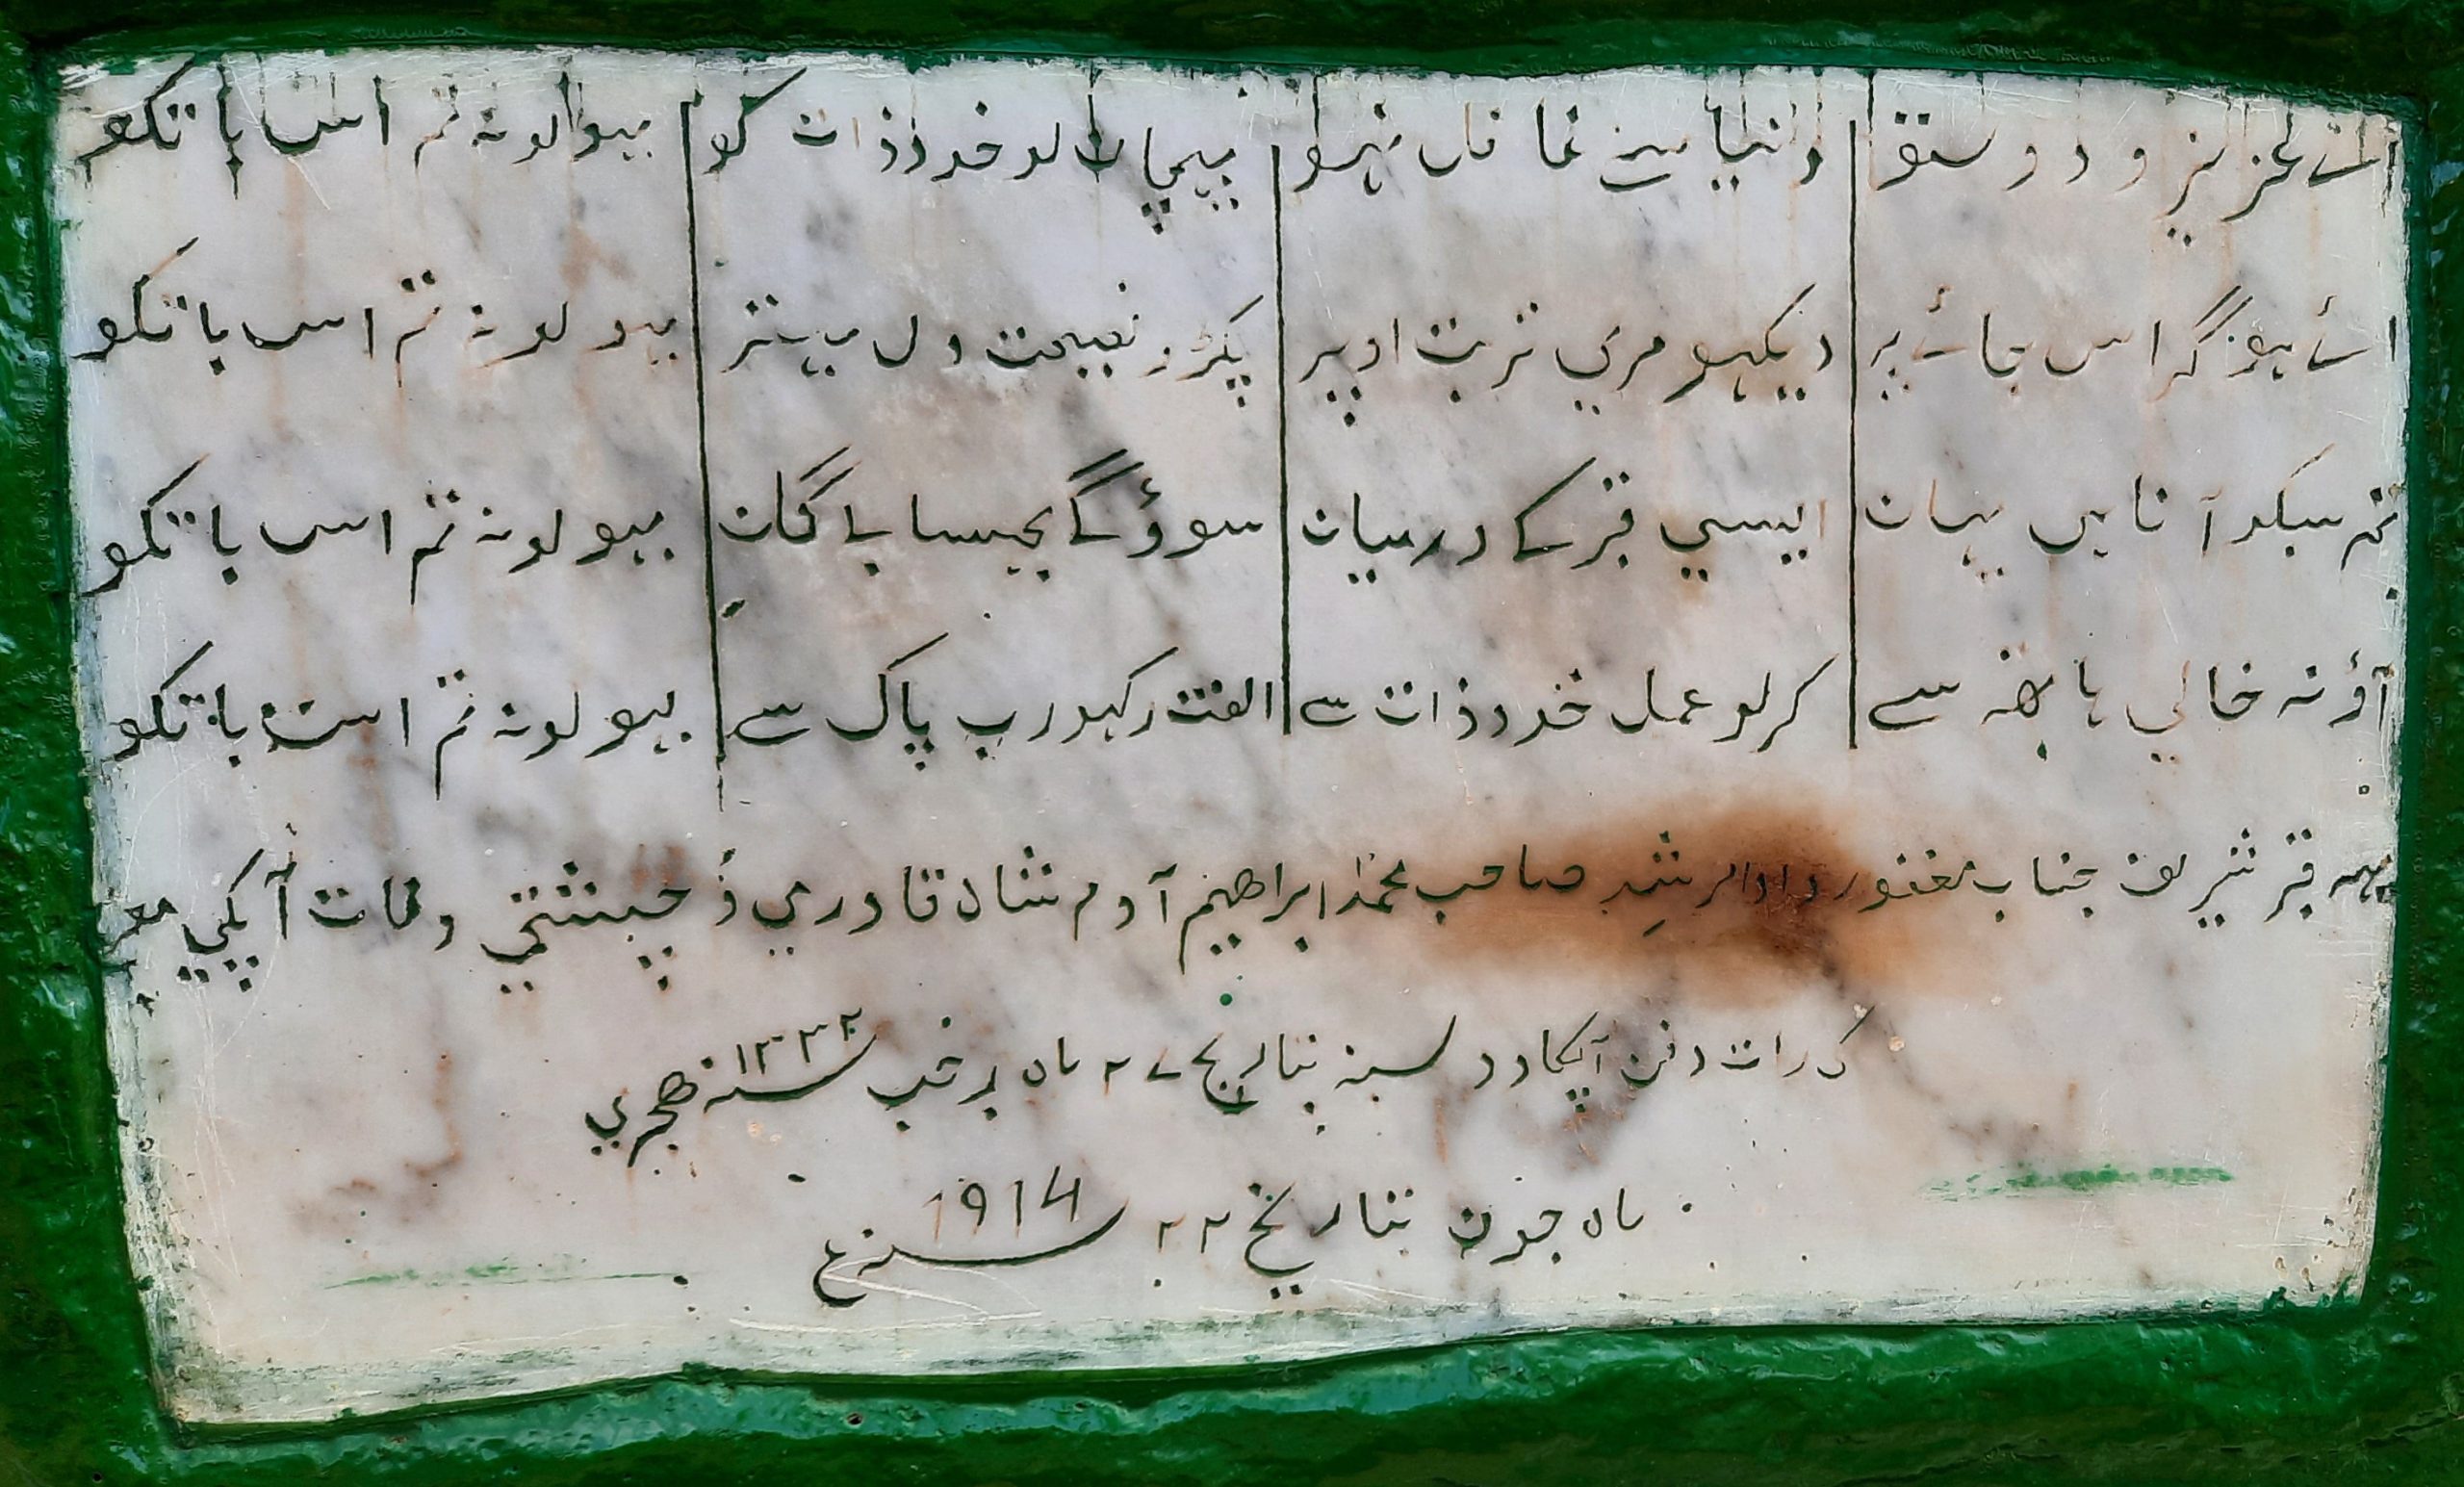 اے عزیز و دوستو دنیا سے غافل نہو پیچان لو خد ذات کو بیولو نہ تم اس باتکو
اے ہوگر اس جائے پر دیکہو مری تربت اوپر پکڑو نصیحت دل بیتر بیولو نہ تم اس باتکو
تم سبکو آنا ہی یہان ایسی قبر کے درمیان سوؤگے بچیسا بے گمان بیولو نہ تم اس باتکو
آؤ نہ خالی ہاتھہ سے کرلو عمل خد ذات سے الفت رکہو رب پاک سے بیولو نہ تم اس باتکو
یہہ قبر شریف جناب مغفور صاحب محمد ابراھیم آدم شاہ قادری و چیشتی وفات آپکی
کی رات دفن آپکا دو بتاریخ ۲۷ ماہ رجب سنہ ۱۳۳۲ ھجری
ماہ جون بتاریخ ۲۲ سنہ 1914 ع